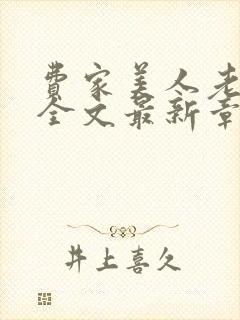 费家美人老
全文最新章
井上喜久